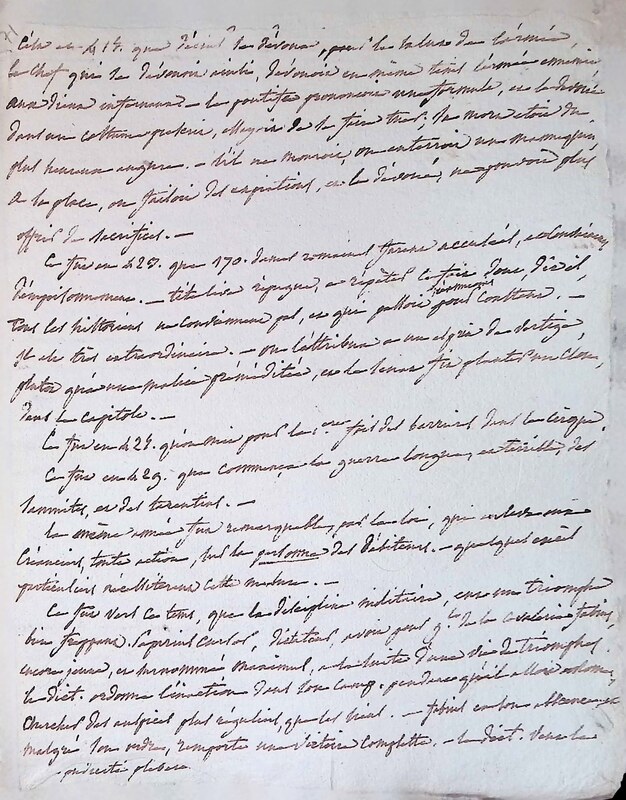 C'est en 414. que décius se dévoua, pour le salut de l'armée
le chef qui se dévouoit ainsi, dévouoit en même tems l'armée ennemie
aux dieux infernaux — le pontife prononçoit une formule, et le dévoué
dans un costume la mort étoit du
plus heureux augure. — s'il ne mouroit, on enterroit un mannequin
à la place, on faisoit des expiations, et le dévoué, ne pouvoit plus
offrir de sacrifices. —
Ce fut en 423. que 170. dames romaines furent accusées, et convaincues
d'empoisonnement. — tite live répugne, à répéter ce fait donc, dit-il,
tous les historiens ne conviennent pas, et qui passoit néanmoins pour constant. —
il est très extraordinaire. — on l'attribua à un esprit de vertige,
plutôt qu'à une malice préméditée, et le sénat fit planter un clou,
dans le capitole. —
Ce fut en 424. qu'on mit pour la 1ere fois des barrières dans le cirque.
Ce fut en 429. que commença la guerre longue, et terrible, des
samnites, et des tarentins. —
la même année fut remarquable, par la loi, qui enleva aux
créanciers, toute action, sur la personne des débiteurs. — quelques excès
particuliers nécessitèrent cette mesure. —
Ce fut vers ce tems, que la discipline militaire, eut un triomphe
bien frappant. Papirius Cursor, dictateur, avoit pour gal de la cavalerie fabius
encore jeune, et surnommé maximus, à la suite d'une vie de triomphes.
le dict. ordonne l'inaction dans son camp. pendant qu'il alloit à rome,
chercher des auspices plus réguliers, que les siens. — fabius en son absence, et
malgré son ordre, remporte une victoire complette. — le dict. dans la